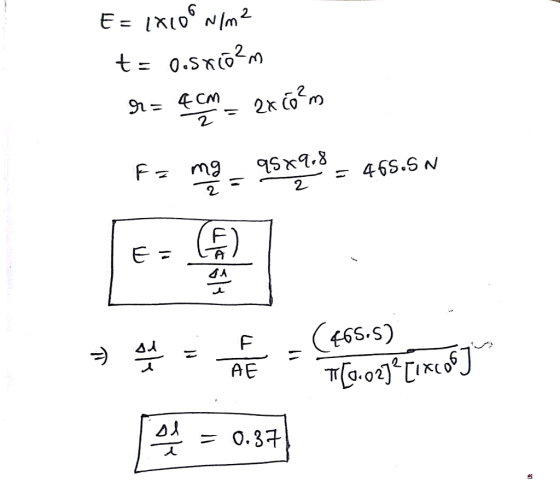 E = 1×10⁶ N/m²
t = 0.5×10⁻² m
r = 4 cm / 2 = 2×10⁻² m
F = mg / 2 = 95×9.8 / 2 = 465.5 N
E = (F/A) / (Δl/l)
⇒ Δl/l = F / AE = (465.5) / π[0.02]² [1×10⁶]
Δl/l = 0.37